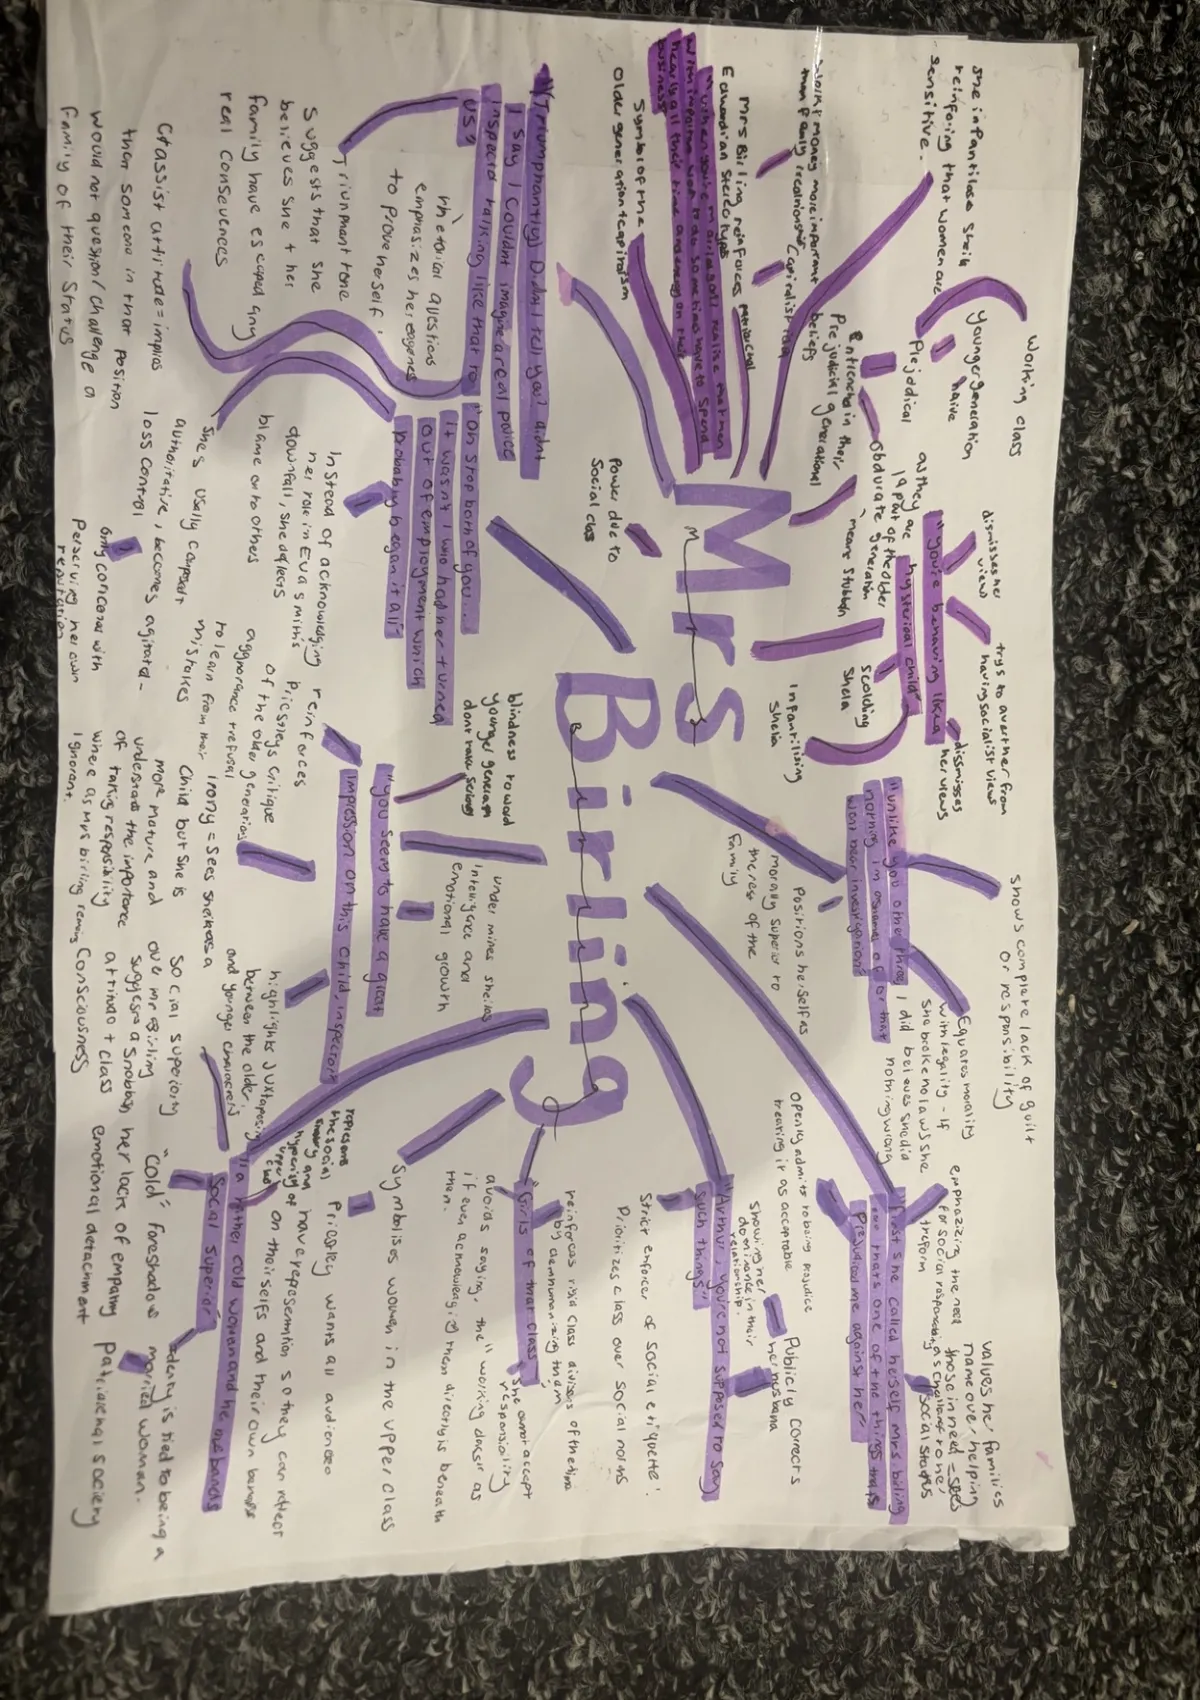 Mrs
Birling
Working class
younger generation
naive
Prejudical
she infantilose Sheila
reinforing that women are
sensitive.
as they are
19 part of the older
Obdurate generation
means stubborn
Entrenched in their
Prejudicial generational
beliefs
Capitalist idea
work + money more important
than family realionship
Mrs Birling reinforces patriarcal
Edwardian Stereotypes
with important work to do sometimes have to spend
nearly all their time and energy on their
business"
Symbol of the
older generation + capitalism
Power due to
Social class
dismisses her
view
trys to avert her from
having socialist views
"you're behaving like a
hysterical child"
dissmisses
her views
scolding
Shela
infantilising
Shelia
shows complete lack of guilt
or responsibility
"unlike you other three, I did
nothing I'm ashamed of or that
wont bear investigation"
Equates morality
with legality - if
she broke no laws she
beleves she did
nothing wrong
Positions herself as
morally superior to
the rest of the
family
values her families
name over helping
those in need = sees
as challenge to her
social status
emphazing the need
for social responsibility
+ reform
"first she called herself Mrs birling
Prejudiced me against her"
openly admits to being prejudice
treating it as acceptable
"Arthur, you're not supposed to say
such things"
Publicly corrects
her husband
showing her
dominance in their
relationship.
Strict enforcer of social etiquette!
Prioritizes class over social norms
"Girls of that class"
reinforces rigid class divisons of the time
by demhumanizing them
She cannot accept
responsibility
avoids saying, the working class as
if even acknowleging them directly is beneath
them.
Symbolises women in the upper class
(Triumphantly) Didn't I tell you? didnt
I say I couldnt imagine a real police
inspector talking like that to
us?
rhetorical questions
emphasizes her eagerness
to prove herself
Triumphant tone
suggests that she
believes she + her
family have escaped any
real consevences
Classist attitude = implies
then someone in that position
would not question / challenge a
family of their status
"oh stop both of you...
it wasn't I who had her turned
out of employment which
probably began it all"
Instead of acknowledging
her role in Evas
downfall, she defless
blame onto others
She's usually composed +
authoritative, becomes agitated -
loss control
only concernes with
perserving her own
reputation
reinforces
pricsleys critique
of the older generations
aggnorance + refusal
to lean from their
mistakes
blindness toward
younger generation
"you seem to have a great
impression on this child, inspector"
undermines shelias
intelligence and
emotional growth
Irony = sees sheila as a
child but she is
more mature and
understands the importance
of taking responsibility
where as Mrs birling remains
ignorant.
highlights juxtaposition
between the older
and younger characters
"a rather cold woman and her husbands
social superior"
represents
the social
hypocrisy of
upper class
Priestley wants all audiences
have representation so they can reflect
on theirselfs and their own
Social superiority
over mr birling
suggests a snobbish
attitude + class
consciousness
"cold" foreshadows
her lack of empathy
emotional detachment
idenity is tied to being a
married woman.
Patriarchal society